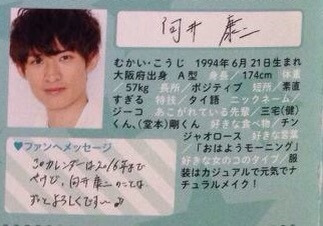 向井康二
むかい・こうじ 1994年6月21日生まれ
大阪府出身 A型 身長/174cm 体重
/57kg 長所/ポジティブ 短所/素直
すぎる 特技/タイ語 ニックネーム/
ジーコ あこがれている先輩/三宅(健)
くん、(堂本)剛くん 好きな食べ物/チン
ジャオロース 好きな言葉/
「おはようモーニング」
好きな女のコのタイプ/服
装はカジュアルで元気でナ
チュラルメイク!
♥ファンへメッセージ
このカレンダーは2016年まで
やけど、向井康二のことは
ずっとよろしくです〜♪